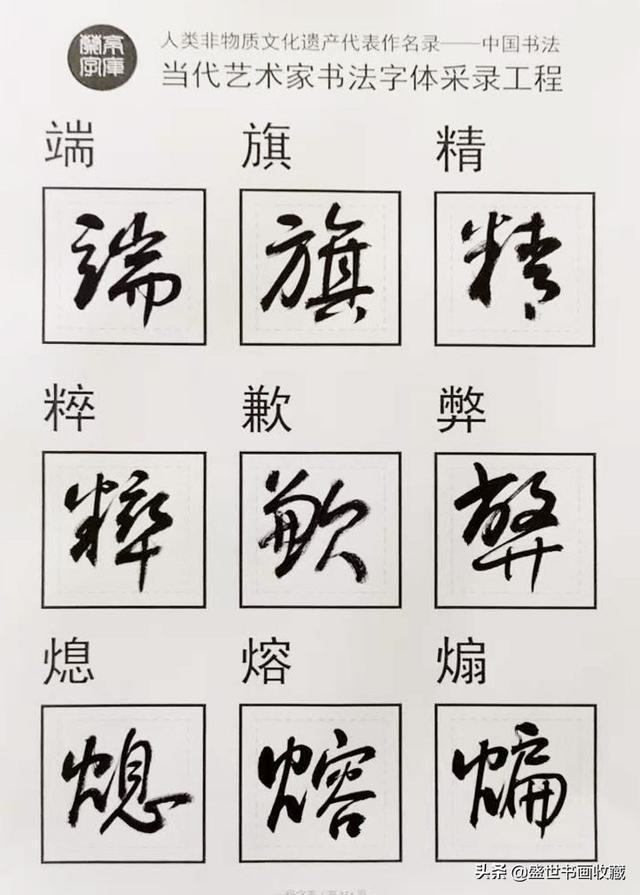 兰亭字库
人类非物质文化遗产代表作名录——中国书法
当代艺术家书法字体采录工程
端 旗 精
端 旗 精
粹 歉 弊
粹 歉 弊
熄 熔 煽
熄 熔 煽
头条 @盛世书画收藏